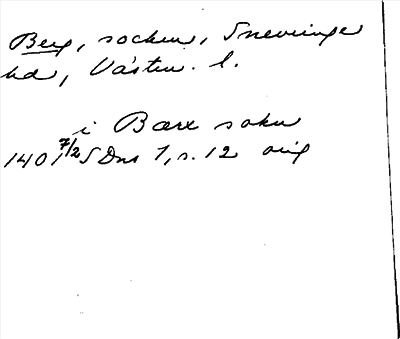 Berg, socken, Snevringe
hd, Västm. l.
i Bærx sokn
1401 7/2 SDns 1, s. 12 orig